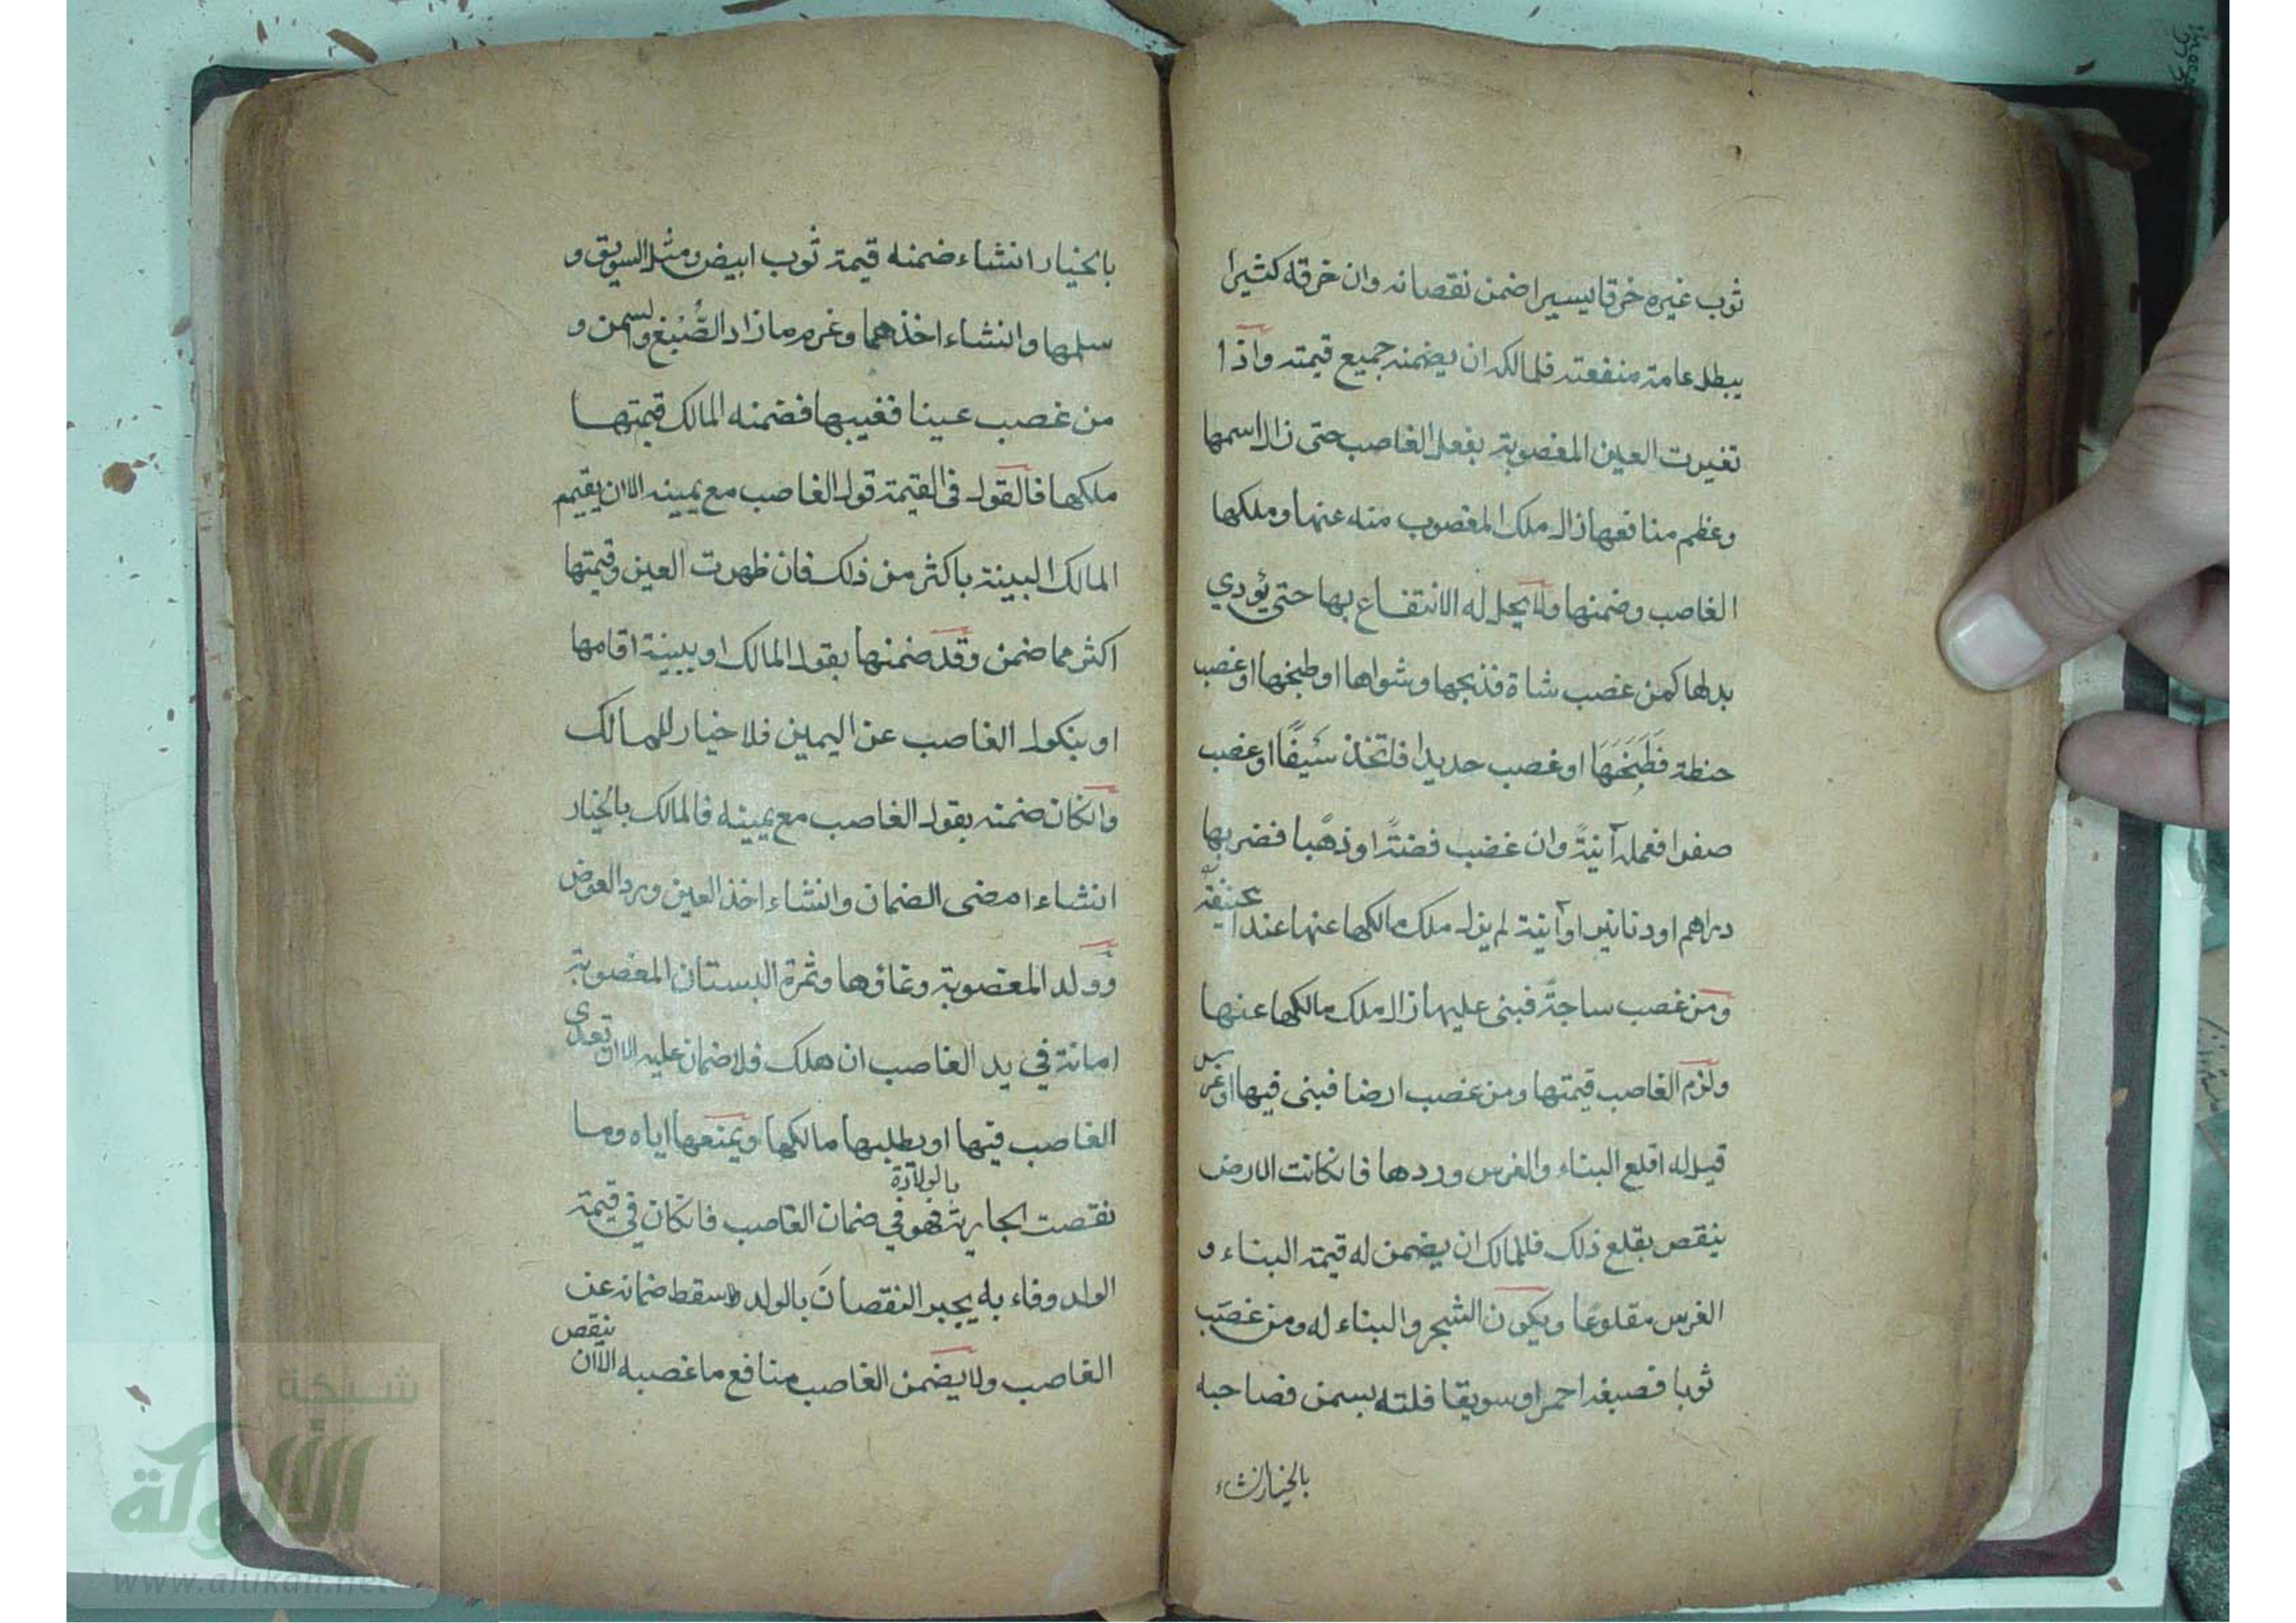 ثوب غيره خرقا يسيرا ضمن نقصانه وان خرقه كثيرا
يبطل عامة منفعته فلمالكه ان يضمنه جميع قيمته واذا
تغيرت العين المغصوبة بفعل الغاصب حتى زال اسمها
وعظم منافعها زال ملك المغصوب منه عنها وملكها
الغاصب وضمنها ولا يحل له الانتفاع بها حتى يؤدي
بدلها كمن غصب شاة فذبحها وشواها او طبخها او غصب
حنطة فطبخها او غصب حديدا فاتخذ سيفًا او غصب
صفرا فعمله آنيةً وان غضب فضةً او ذهبا فضربها
دراهم او دنانير او آنية لم يزل ملك مالكها عنها عند ابي حنيفة
ومن غصب ساجةً فبنى عليها زال ملك مالكها عنها
ولزم الغاصب قيمتها ومن غصب ارضا فبنى فيها او غرس
قيل له اقلع البناء والغرس وردها فانكانت الارض
ينقص بقلع ذلك فللمالك ان يضمن له قيمة البناء و
الغرس مقلوعًا ويكون الشجر والبناء له ومن غصب
ثوبا فصبغه احمر او سويقا فلته بسمن فصاحبه
بالخيار انشاء
بالخيار انشاء ضمنه قيمة ثوب ابيض ومثل السويق و
سلمها وانشاء اخذهما وغرم ما زاد الصُّبْغ والسمن و
من غصب عينا فغيبها فضمنه المالك قيمتها
ملكها فالقول في القيمة قول الغاصب مع يمينه الا ان يقيم
المالك البينة باكثر من ذلك فان ظهرت العين وقيمتها
اكثر مما ضمن وقد ضمنها بقول المالك او ببينة اقامها
او بنكول الغاصب عن اليمين فلا خيار للمالك
وانكان ضمنه بقول الغاصب مع يمينه فالمالك بالخيار
انشاء امضى الضمان وانشاء اخذ العين ورد العوض
وولد المغصوبة ونماؤها وثمرة البستان المغصوبة
امانة في يد الغاصب ان هلك فلا ضمان عليه الا ان تعدى
الغاصب فيها او يطلبها مالكها ويمنعها اياه وما
نقصت الجارية بالولادة فهو في ضمان الغاصب فانكان في قيمة
الولد وفاء به يجبر النقصانَ بالولد وسقط ضمانه عن
الغاصب ولا يضمن الغاصب منافع ما غصبه الا ان ينقص
شبكة
الألوكة
www.alukah.net